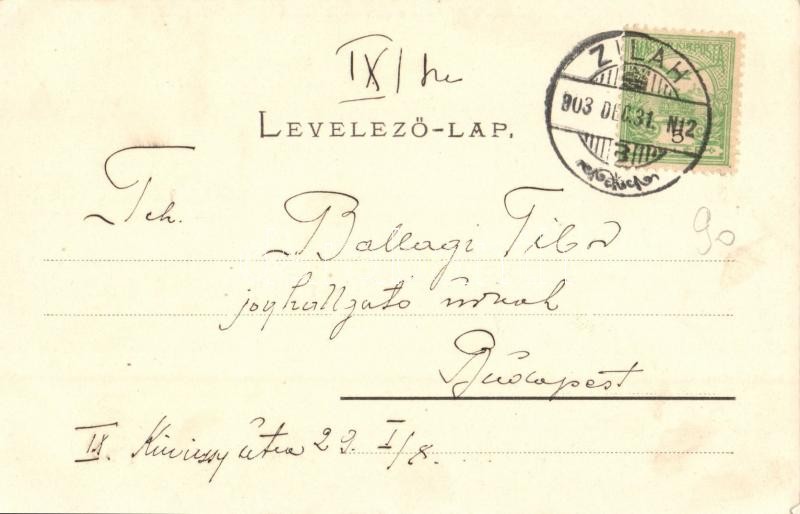 IX/ke
ZILAH
903 DEC. 31. N12
5
LEVELEZŐ-LAP.
Tek.
Ballagi Tibor
joghallgató úrnak
Budapest
IX. utca 29. I/8.
90